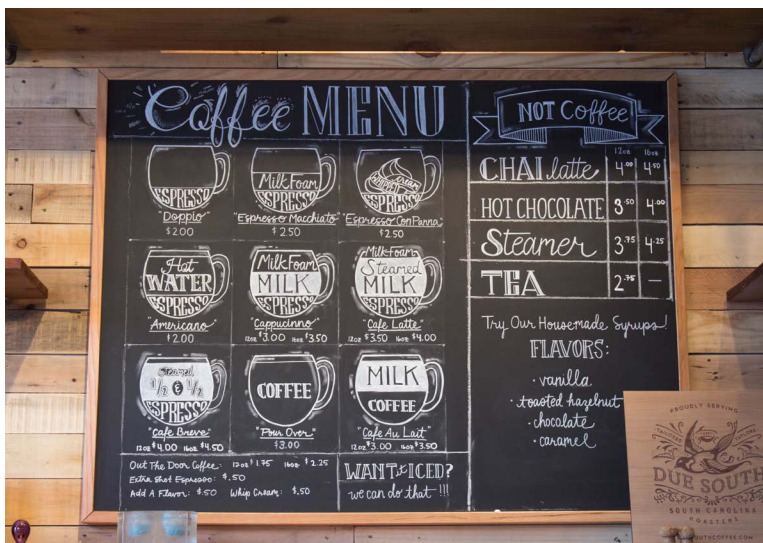 Coffee MENU
ESPRESSO
"Dopplo"
$2.00
Milk Foam
ESPRESSO
"Espresso Macchiato"
$2.50
WHIPPED cream
ESPRESSO
"Espresso Con Panna"
$2.50
Hot
WATER
ESPRESSO
"Americano"
$2.00
Milk Foam
MILK
ESPRESSO
"Cappucinno"
12oz $3.00 16oz $3.50
Milk Foam
Steamed
MILK
ESPRESSO
"Cafe Latte"
12oz $3.50 16oz $4.00
steamed
1/2 & 1/2
ESPRESSO
"Cafe Breve"
12oz $4.00 16oz $4.50
COFFEE
"Pour Over"
$3.00
MILK
COFFEE
"Cafe Au Lait"
12oz $3.00 16oz $3.50
Out The Door Coffee: 12oz $1.75 16oz $2.25
Extra Shot Espresso: $.50
Add A Flavor: $.50 Whip Cream: $.50
WANT it ICED?
we can do that !!!
NOT Coffee
12oz 16oz
CHAI latte 4.00 4.50
HOT CHOCOLATE 3.50 4.00
Steamer 3.75 4.25
TEA 2.75 —
Try Our Housemade Syrups!
FLAVORS:
• vanilla
• toasted hazelnut
• chocolate
• caramel
PROUDLY SERVING
DUE SOUTH
SOUTH CAROLINA
ROASTERS